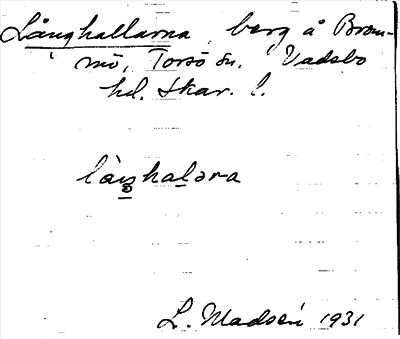 Långhallarna, berg å Brom-
mö, Torsö sn. Vadsbo
hd. Skar. l.
làŋhaləra
L. Madsén 1931